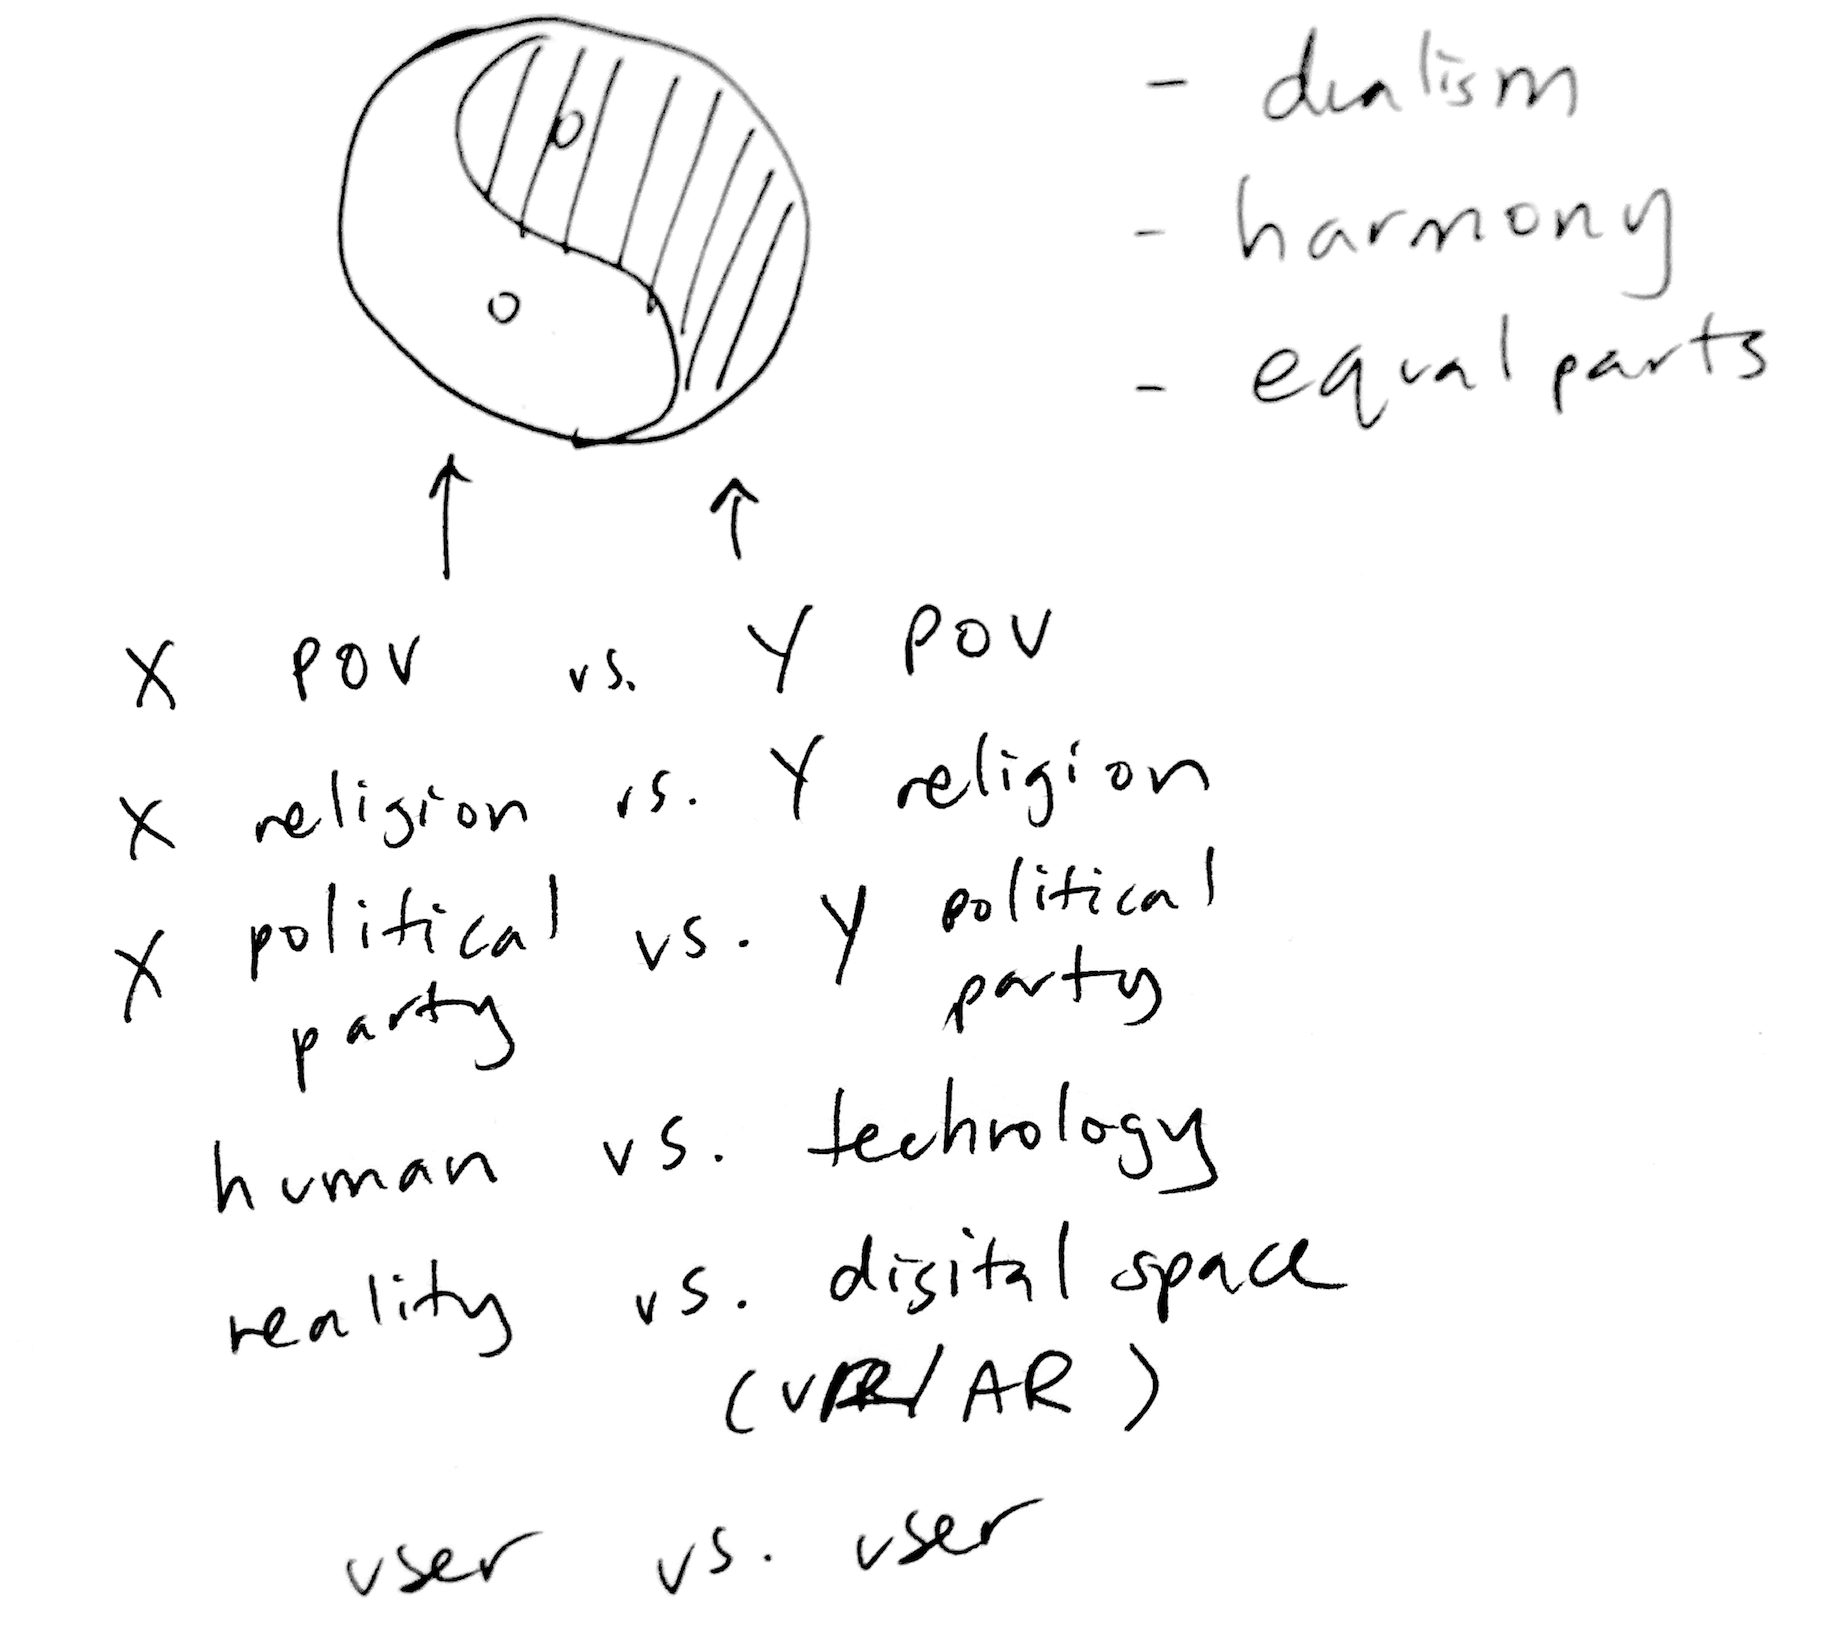 - dualism
- harmony
- equal parts
X POV vs. Y POV
X religion vs. Y religion
X political vs. Y political
party party
human vs. technology
reality vs. digital space
(VR/AR)
user vs. user